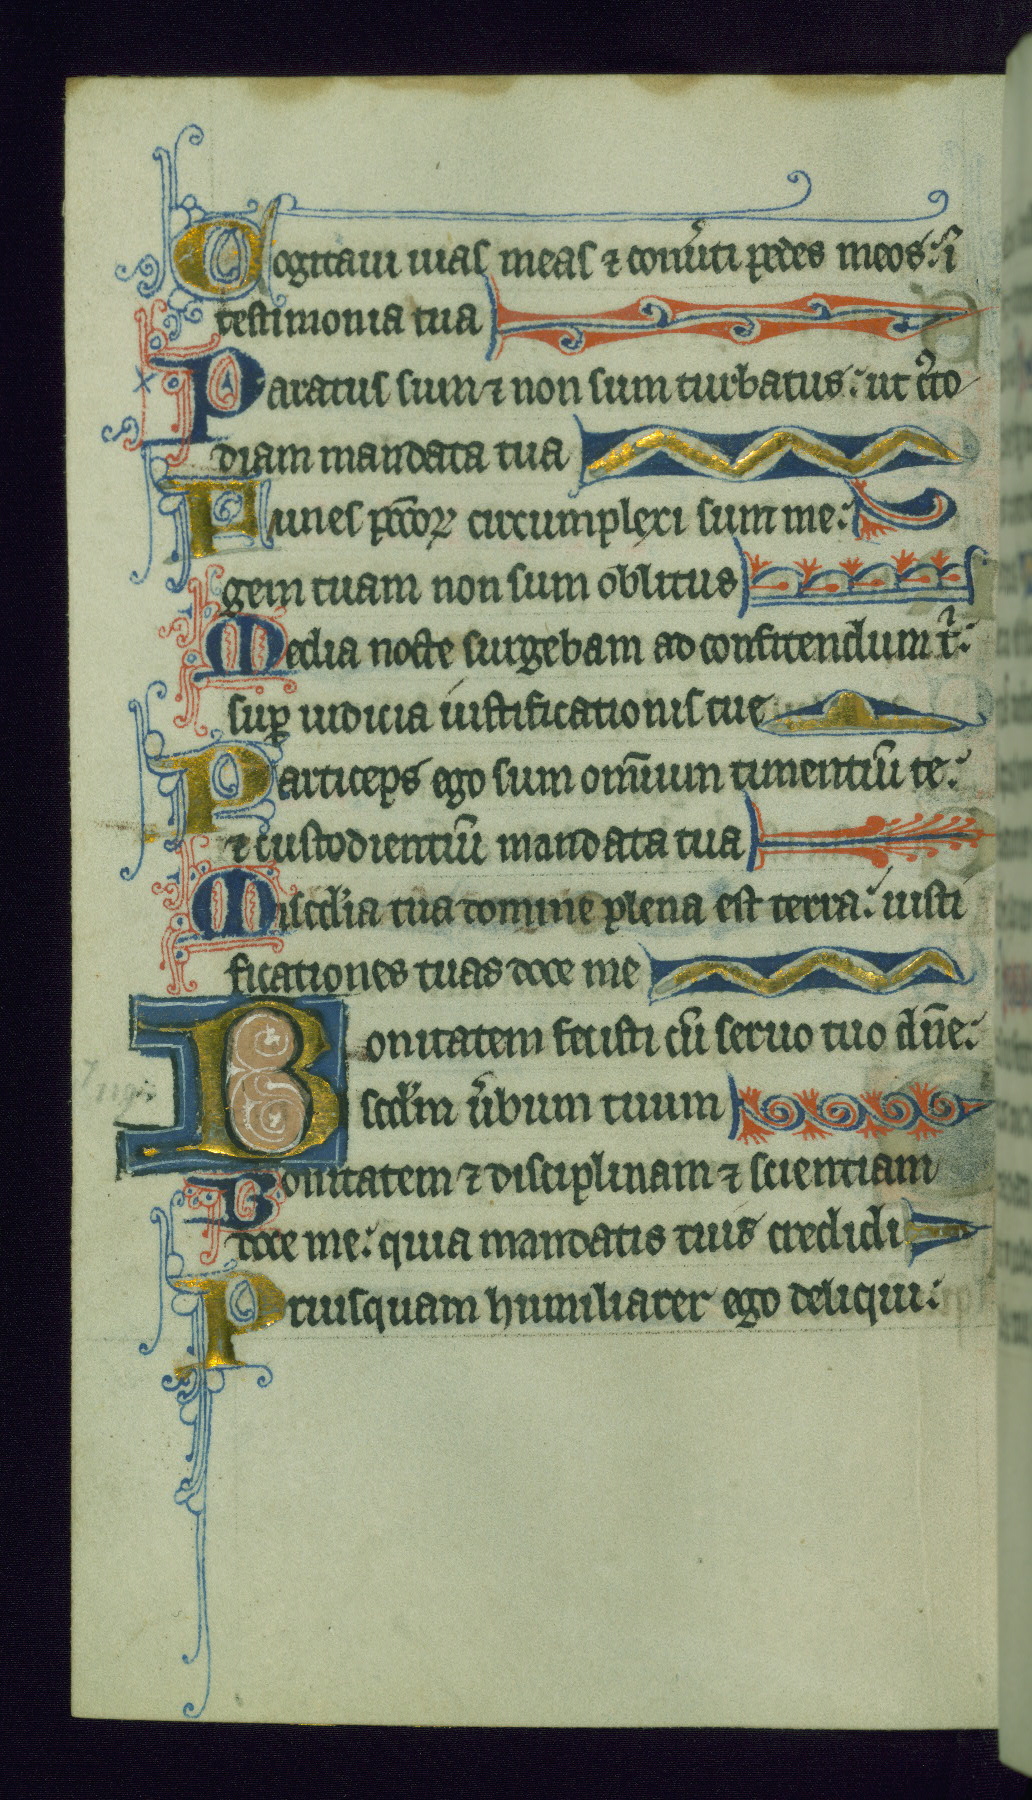 Cogitaui uias meas ⁊ conu̾ti pedes meos: ī
testimonia tua
Paratus sum ⁊ non sum turbatus: ut c᷒to
diam mandata tua
Funes pc̄coꝝ circumplexi sunt me:
gem tuam non sum oblitus
Media nocte surgebam ad confitendum t̾:
sup̱ iudicia iustificationis tue
Particeps ego sum omīum timentiū te:
⁊ custodientiū mandata tua
Misc̄dia tua domine plena est terra: iusti
ficationes tuas doce me
Bonitatem fecisti cū seruo tuo dn̄e:
scd̄m u̾bum tuum
Bonitatem ⁊ disciplinam ⁊ scientiam
doce me: quia mandatis tuis credidi
Priusquam humiliarer ego deliqui: